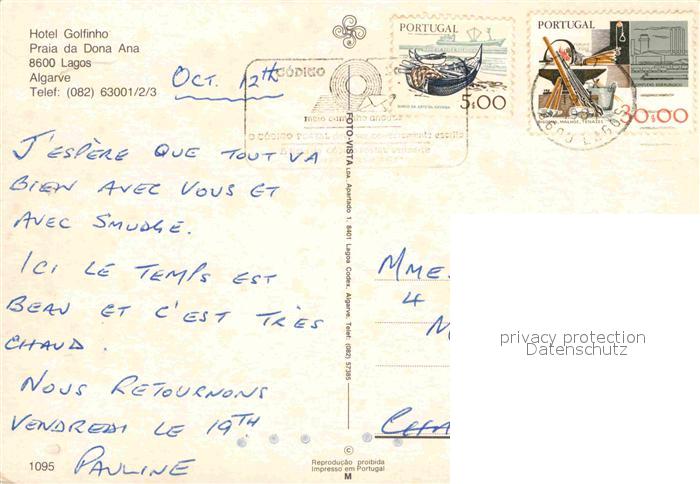 Hotel Golfinho
Praia da Dona Ana
8600 Lagos
Algarve
Telef: (082) 63001/2/3
Oct. 12th
J'ESPÈRE QUE TOUT VA
BIEN AVEC VOUS ET
AVEC SMUDGE.
ICI LE TEMPS EST
BEAU ET C'EST TRÈS
CHAUD.
NOUS RETOURNONS
VENDREDI LE 19TH
PAULINE
1095
CÓDIGO
meio caminho andado
PORTUGAL
5$00
PORTUGAL
BIGORNA, MALHOS, TENAZES
30$00
8600 LAGOS
FOTO-VISTA Lda. Apartado 1, 8401 Lagoa Codex. Algarve. Telef: (082) 57385
MME.
4
privacy protection
Datenschutz
©
Reprodução proibida
Impresso em Portugal
M